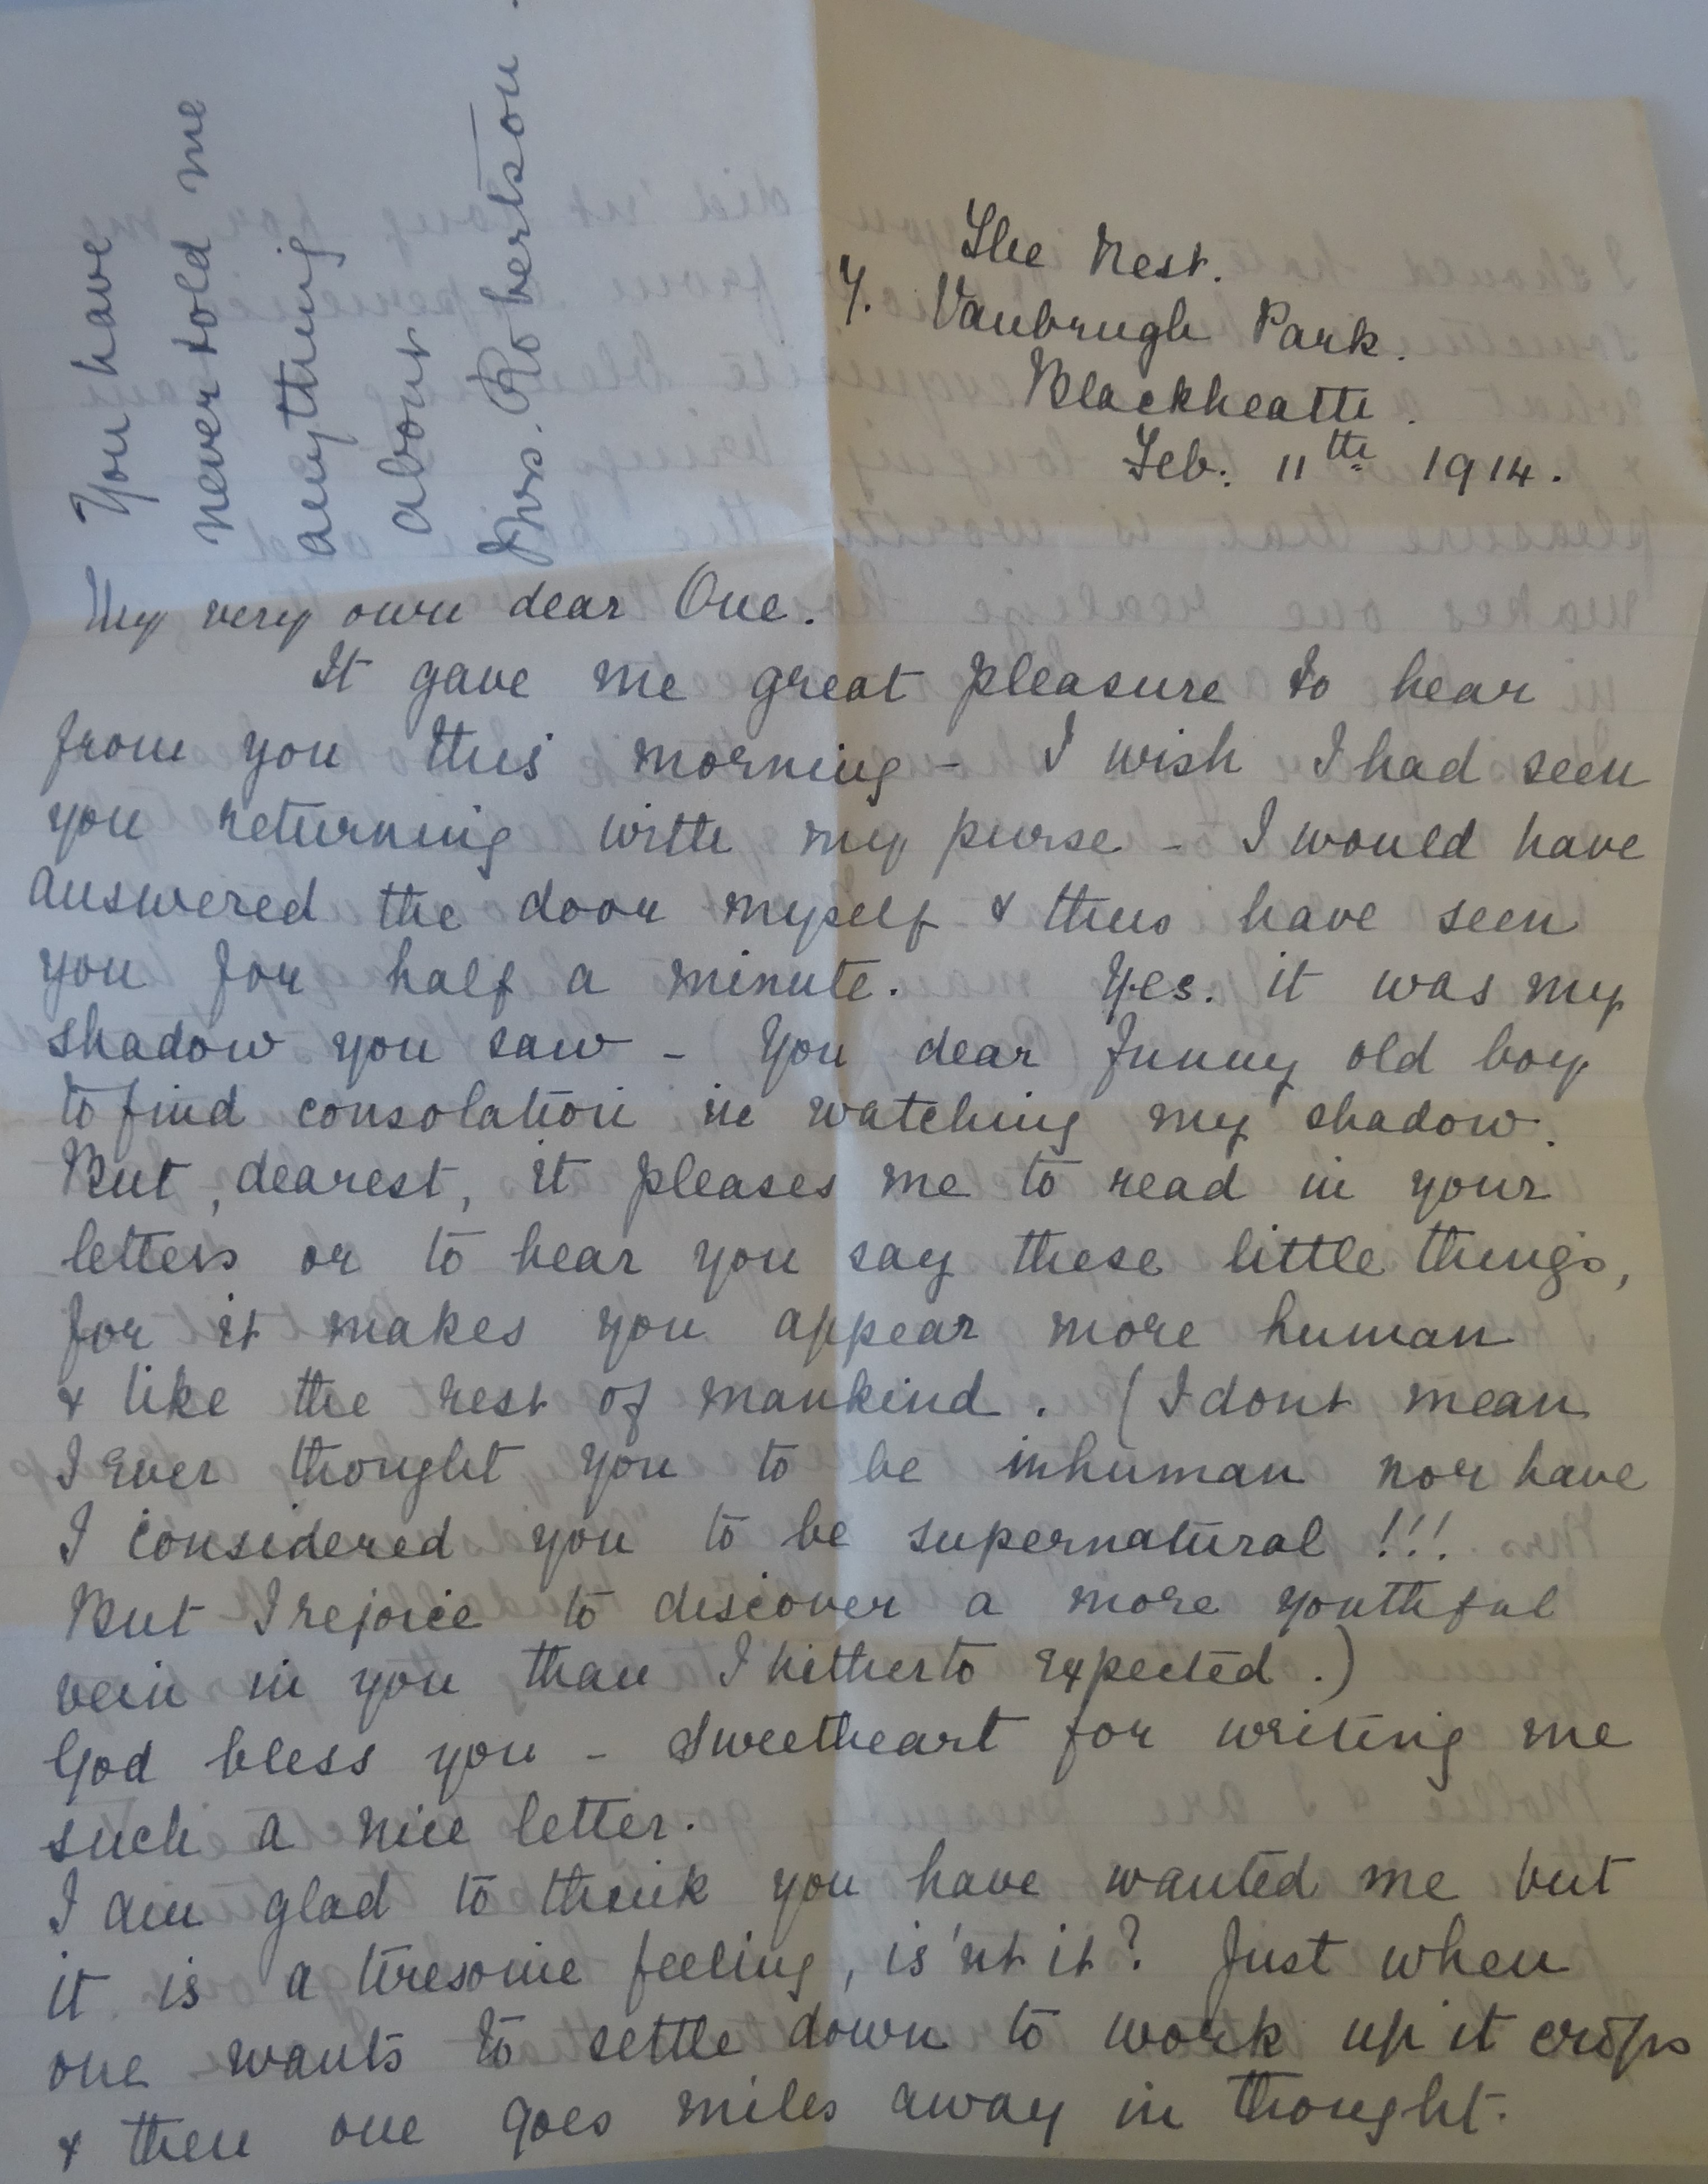 You have
never told me
anything
about
Mrs. Robertson.
The Nest.
7. Vanbrugh Park.
Blackheath.
Feb: 11th 1914.
My very own dear One.
It gave me great pleasure to hear
from you this morning - I wish I had seen
you returning with my purse - I would have
answered the door myself & thus have seen
you for half a minute. Yes. it was my
shadow you saw - You dear funny old boy
to find consolation in watching my shadow.
But, dearest, it pleases me to read in your
letters or to hear you say these little things,
for it makes you appear more human
& like the rest of mankind. (I dont mean
I ever thought you to be inhuman nor have
I considered you to be supernatural !!!
But I rejoice to discover a more youthful
vein in you than I hitherto expected.)
God bless you - Sweetheart for writing me
such a nice letter.
I am glad to think you have wanted me but
it is a tiresome feeling, is'nt it? Just when
one wants to settle down to work up it crops
& then one goes miles away in thought.